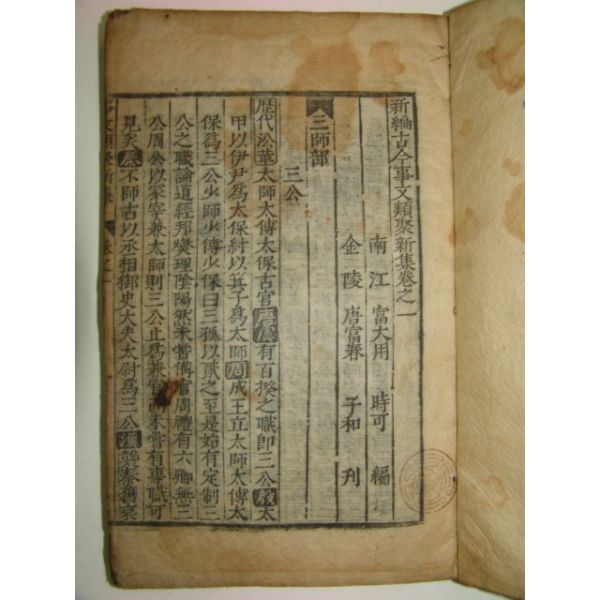 新編古今事文類聚新集卷之一
南江 富大用 時可 編
金陵 唐富春 子和 刊
三師部
三公
歷代沿革太師太傅太保古官唐虞有百揆之職即三公殷太
甲以伊尹爲太保紂以箕子爲太師周成王立太師太傅太
保爲三公少師少傅少保曰三孤以貳之至是始有定制三
公之職論道經邦燮理陰陽然未嘗備官周禮有六卿無三
公周公以冢宰兼太師則三公止爲兼官而未嘗有專職可
見矣秦不師古以丞相御史大夫太尉爲三公漢襲秦舊哀
事文類聚新集 卷之一